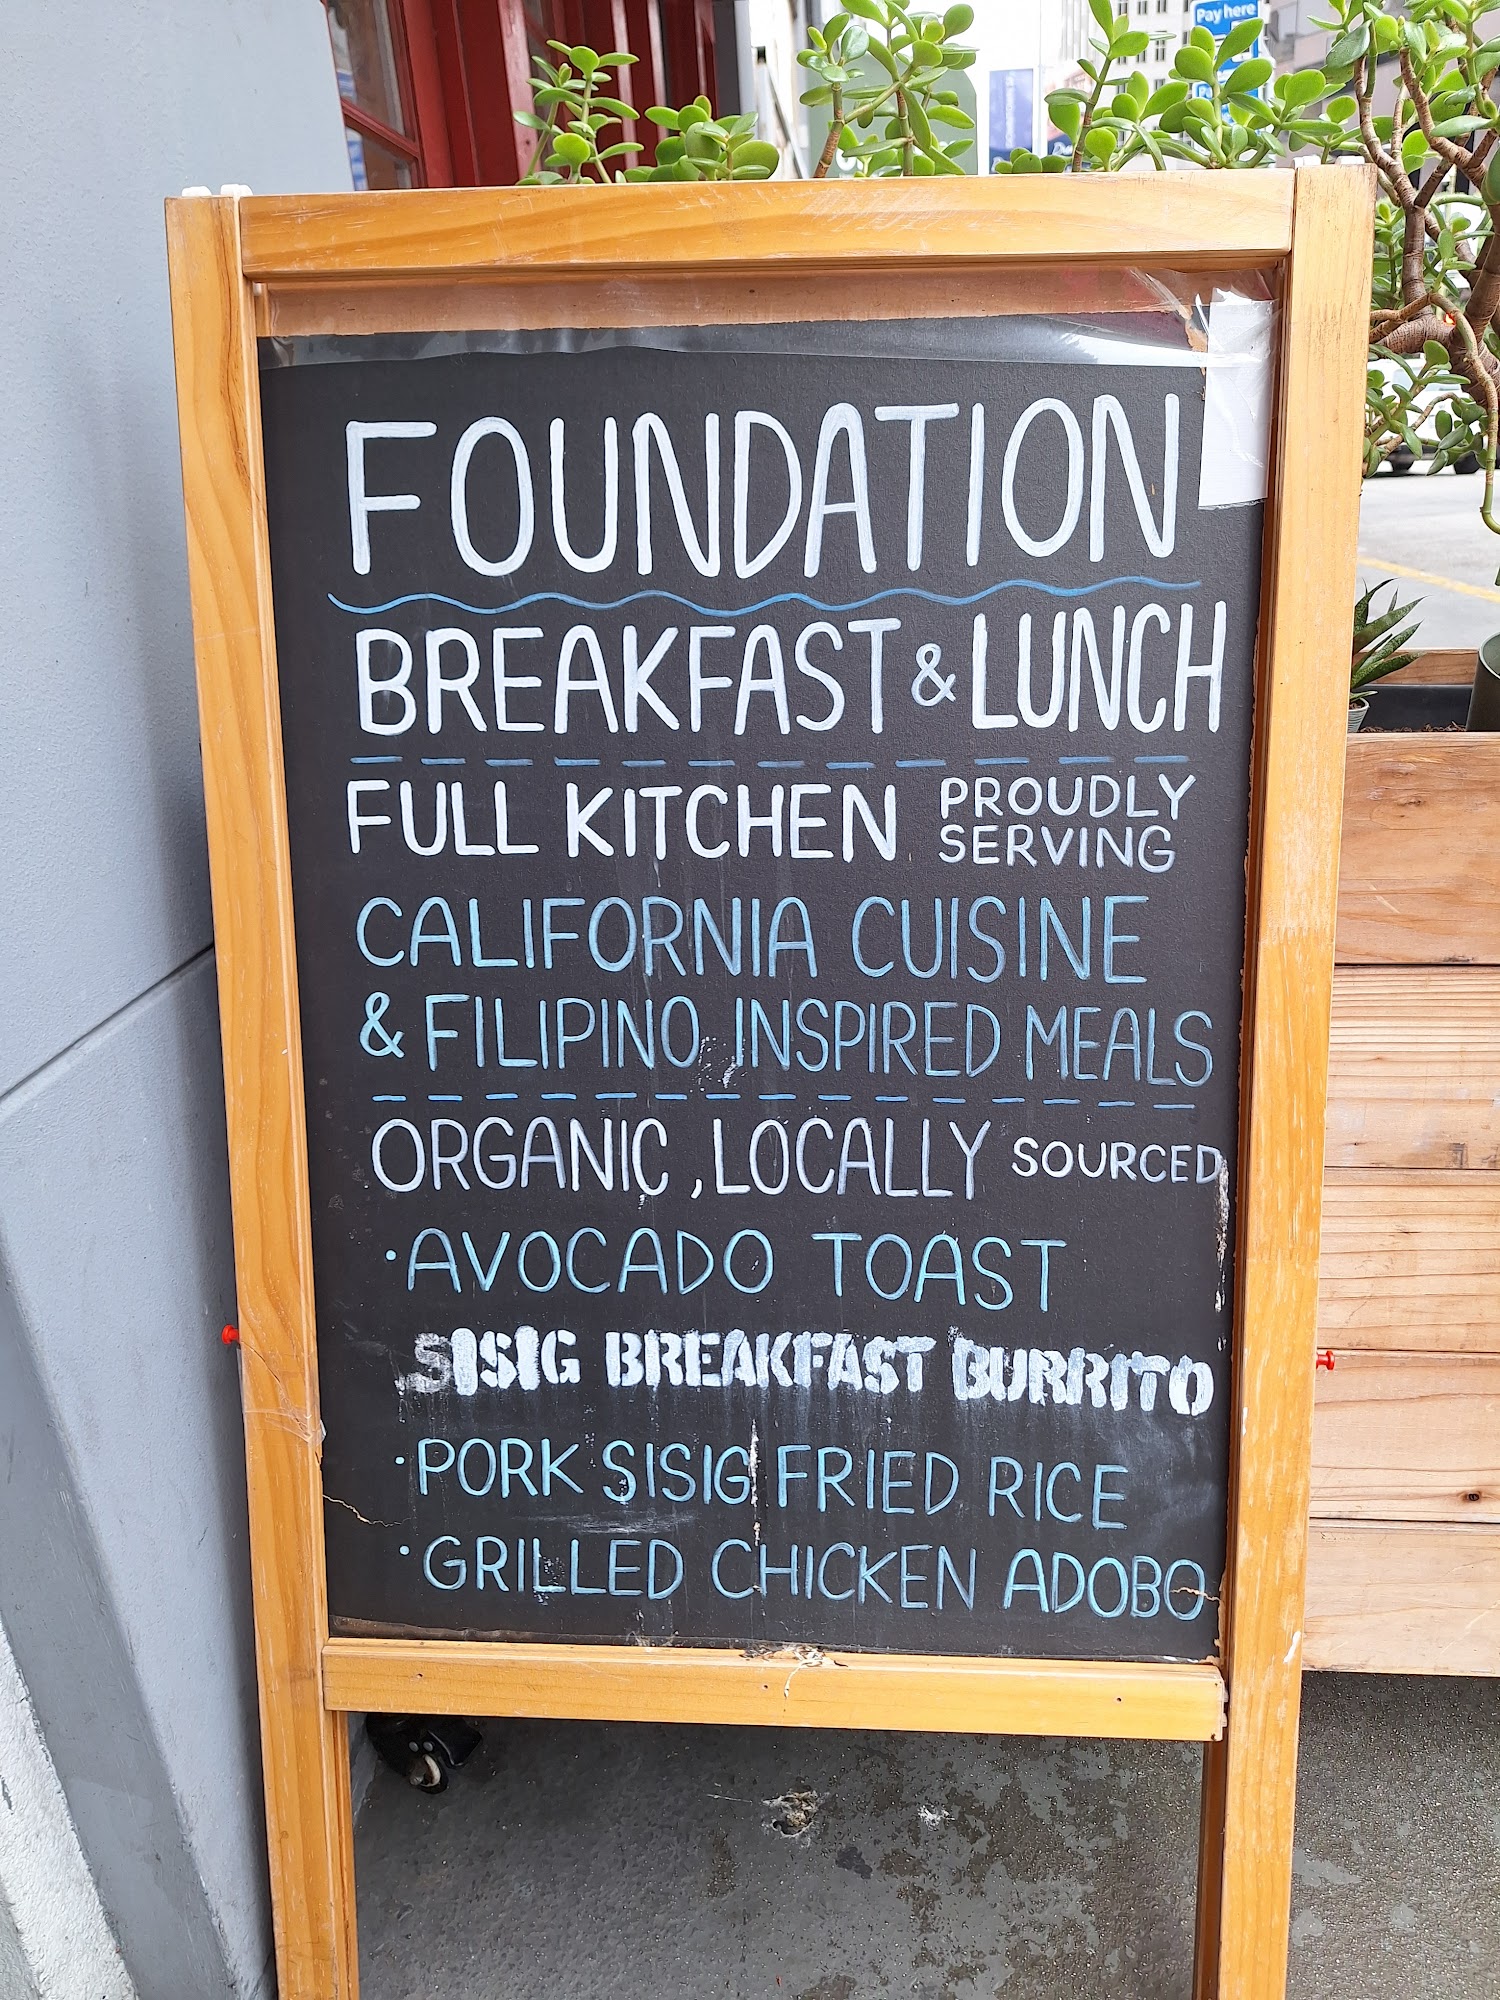 Pay here
FOUNDATION
BREAKFAST & LUNCH
FULL KITCHEN PROUDLY SERVING
CALIFORNIA CUISINE
& FILIPINO INSPIRED MEALS
ORGANIC, LOCALLY SOURCED
• AVOCADO TOAST
SISIG BREAKFAST BURRITO
• PORK SISIG FRIED RICE
• GRILLED CHICKEN ADOBO